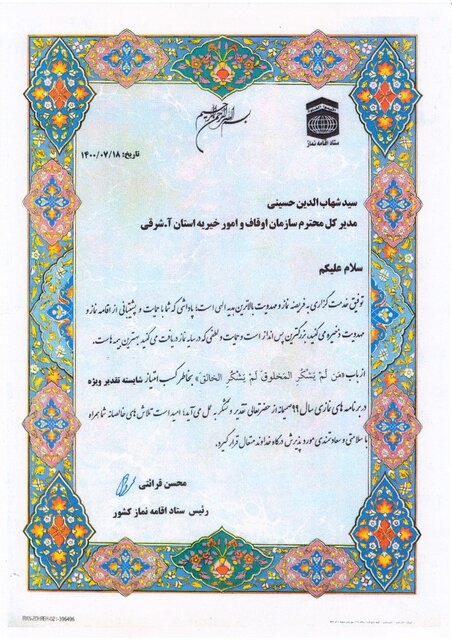 بسم الله الرحمن الرحیم
ستاد اقامه نماز
تاریخ: ۱۴۰۰/۰۷/۱۸
سید شهاب الدین حسینی
مدیر کل محترم سازمان اوقاف و امور خیریه استان آ.شرقی
سلام علیکم
توفیق خدمت گزاری به فریضه نماز و مهدویت بالاترین هدیه الهی است؛ پاداشی که شما با حمایت و پشتیبانی از اقامه نماز و
مهدویت ذخیره می کنید، بزرگترین پس انداز است و حمایت و لطفی که در سایه نماز دریافت می کنید بهترین بیمه هاست.
از باب «مَن لَمْ یَشْکُرِ المَخلوقَ لَمْ یَشْکُرِ الخالِقَ» بخاطر کسب امتیاز شایسته تقدیر ویژه
در برنامه های نمازی سال ۹۹ صمیمانه از حضرتعالی تقدیر و تشکر به عمل می آید؛ امید است تلاش های خالصانه شما همراه
با سلامتی و سعادتمندی مورد پذیرش درگاه خداوند متعال قرار گیرد.
محسن قرائتی
رئیس ستاد اقامه نماز کشور